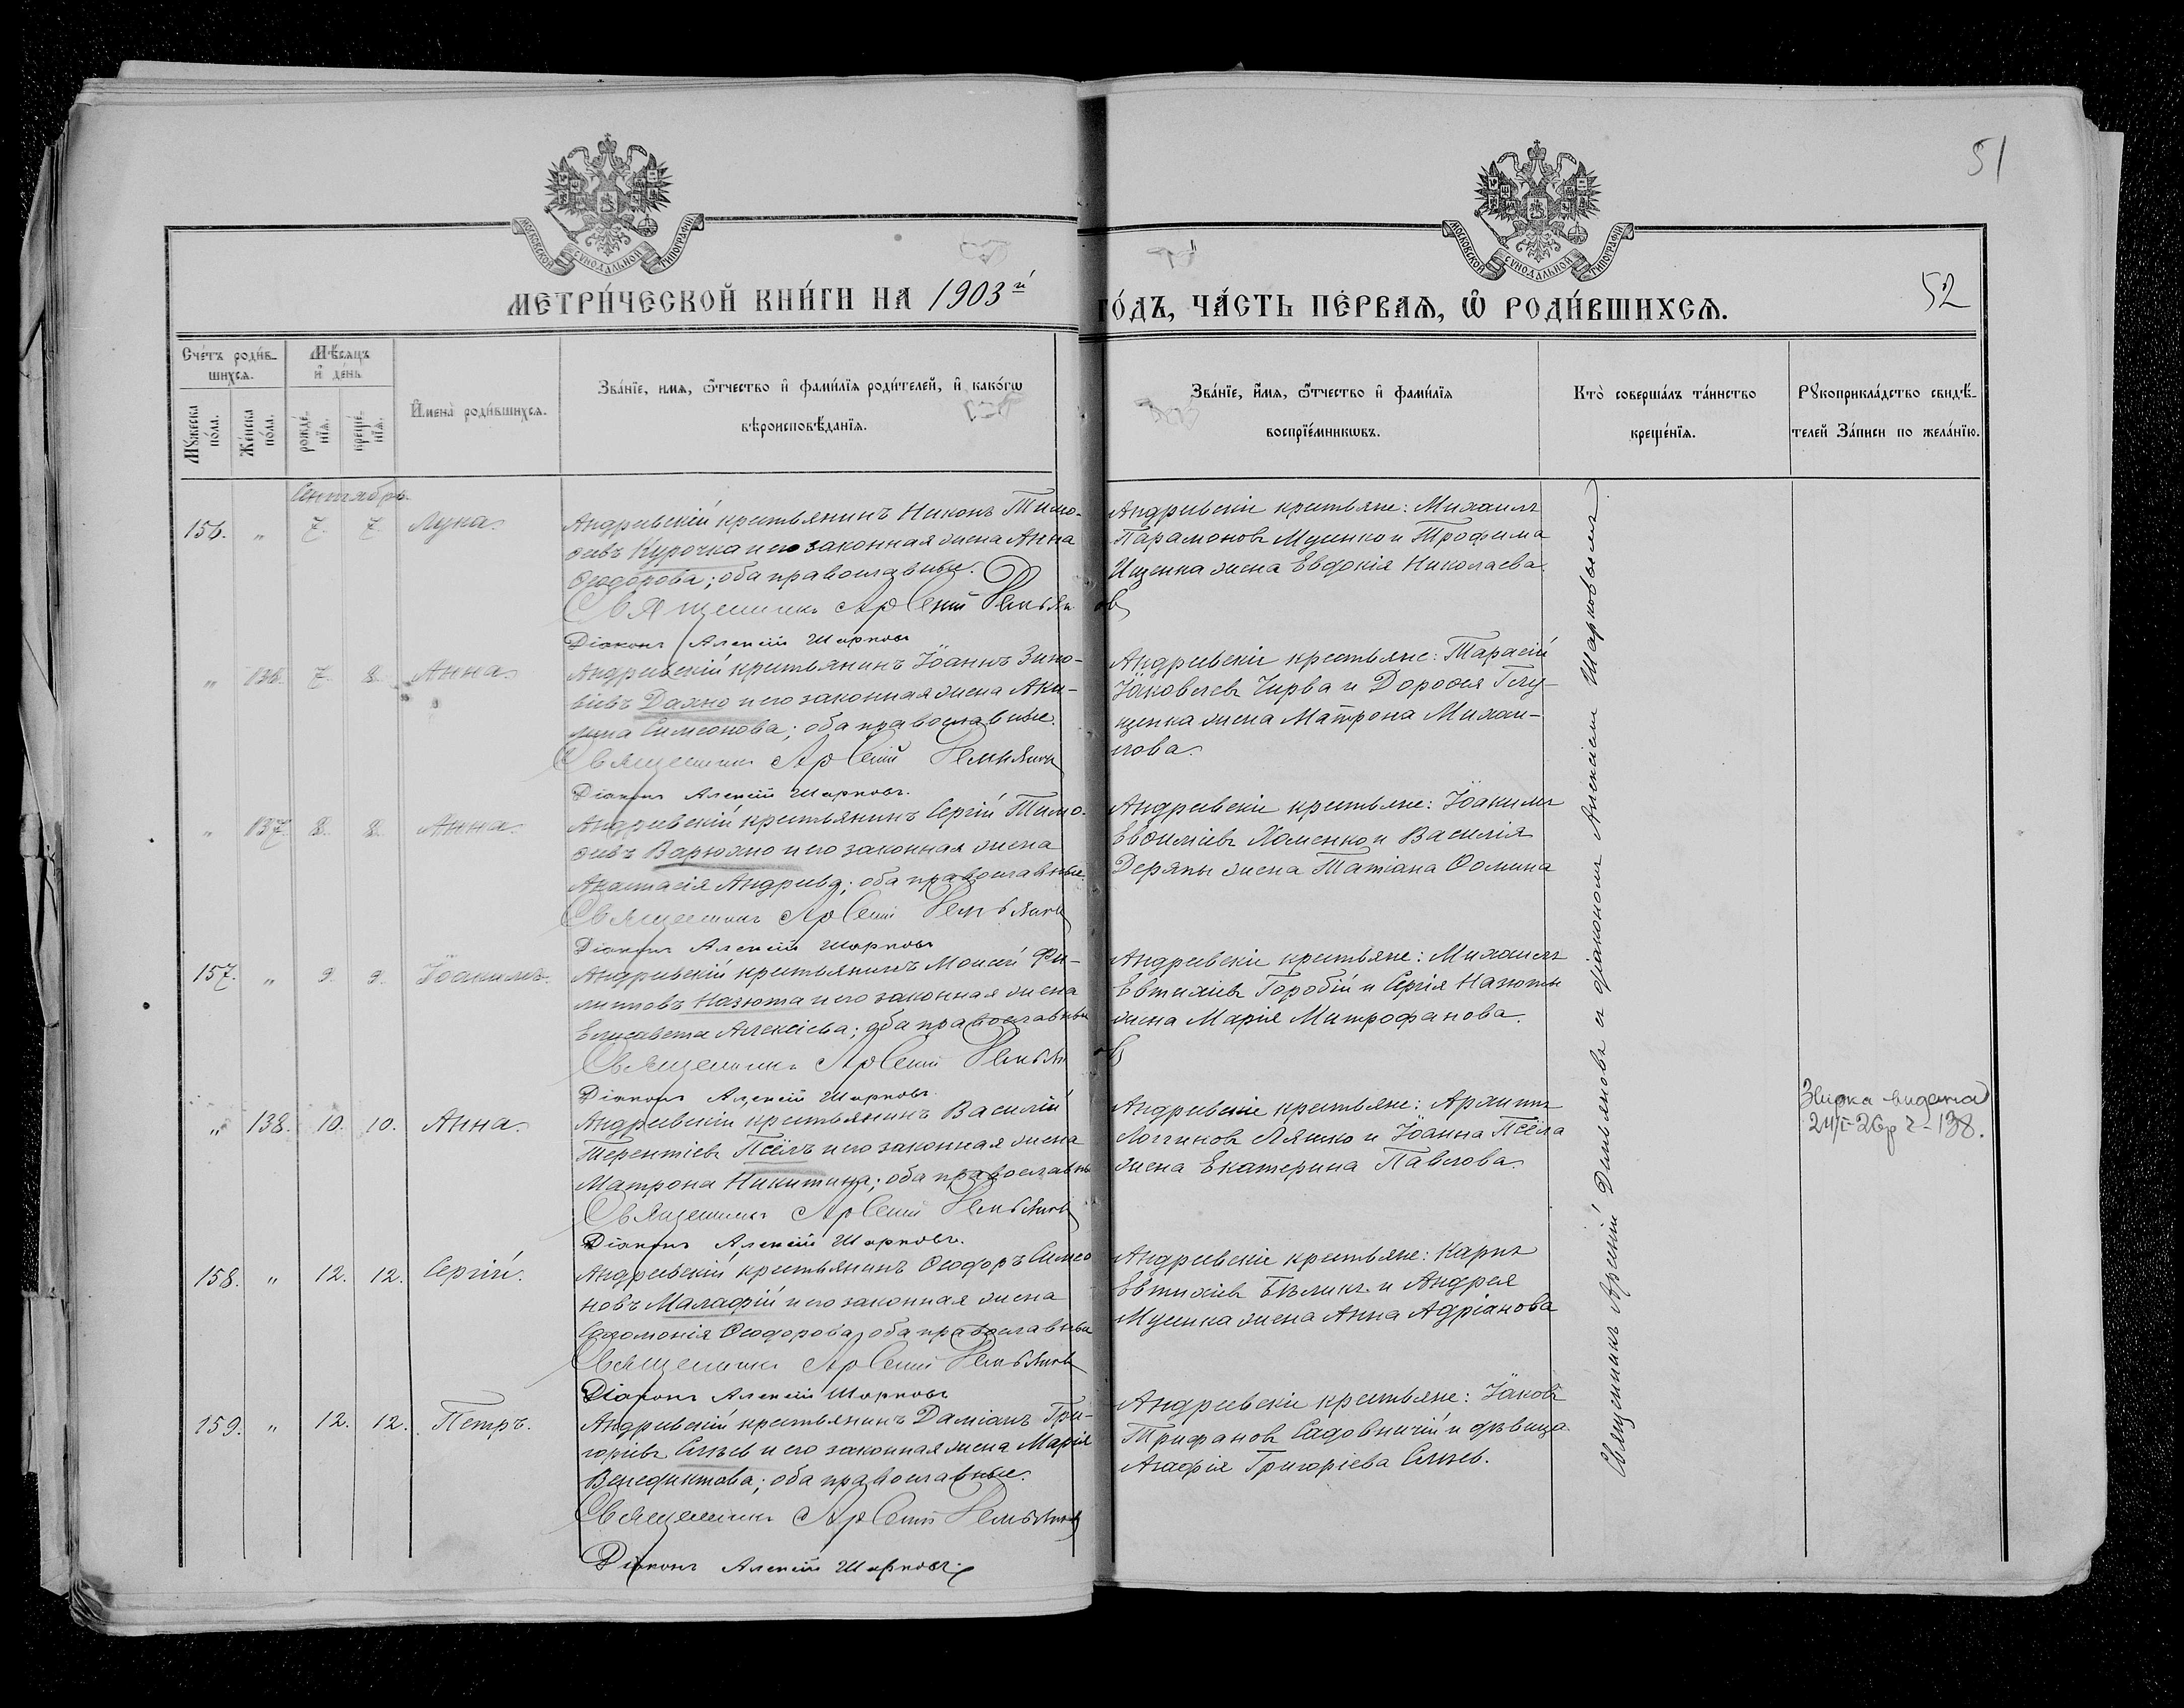 51
МОСКОВСКОЙ СѴНОДАЛЬНОЙ ТИПОГРАФІИ
МОСКОВСКОЙ СѴНОДАЛЬНОЙ ТИПОГРАФІИ
МЕТРИ́ЧЕСКОЙ КНИ́ГИ НА 1903й ГО́ДЪ, ЧА́СТЬ ПЕ́РВАѦ, Ѡ РОДИ́ВШИХСѦ.
52
Сче́тъ роди́в-
шихсѧ.
Мѣ́сѧцъ
и҆ де́нь
Мꙋ́жеска по́ла.
Же́нска по́ла.
рожде́-
нїѧ.
креще́-
нїѧ.
И҆мена̀ роди́вшихсѧ.
Зва́нїе, и́мѧ, ѻ҆́тчество и҆ фами́лїѧ роди́телей, и҆ како́гѡ
вѣроисповѣ́данїѧ.
Зва́нїе, и҆́мѧ, ѻ҆́тчество и҆ фами́лїѧ
воспрїе́мникѡвъ.
Кто̀ соверша́лъ та́инство
креще́нїѧ.
Рꙋкоприкла́дство свидѣ́-
телей за́писи по жела́нїю.
Сентябрь.
156. „ 7. 7. Лука.
Андреевскій крестьянинъ Никонъ Тимо-
ѳеевъ Курочка и его законная жена Анна
Ѳеодорова; оба православные.
Священникъ Арсеній Демьяновъ
Діаконъ Алексій Шарковъ
Андреевскіе крестьяне: Михаилъ
Парамоновъ Мусенко и Трофима
Ищенка жена Евдокія Николаева.
„ 136. 7. 8. Анна.
Андреевскій крестьянинъ Іоаннъ Зино-
віевъ Дахно и его законная жена Аки-
лина Симеонова; оба православные.
Священникъ Арсеній Демьяновъ
Діаконъ Алексій Шарковъ.
Андреевскіе крестьяне: Тарасій
Іаковлевъ Чирва и Дороѳея Глу-
щенка жена Матрона Михаи-
лова.
„ 137. 8. 8. Анна.
Андреевскій крестьянинъ Сергій Тимо-
ѳеевъ Варюхно и его законная жена
Анастасія Андреева; оба православные.
Священникъ Арсеній Демьяновъ
Діаконъ Алексій Шарковъ
Андреевскіе крестьяне: Іоакимъ
Евѳиміевъ Хоменко и Василія
Деряпы жена Татіана Ѳомина
157. „ 9. 9. Іоакимъ.
Андреевскій крестьянинъ Моисей Фи-
липповъ Назюта и его законная жена
Елисавета Алексіева; оба православные
Священникъ Арсеній Демьяновъ
Діаконъ Алексій Шарковъ.
Андреевскіе крестьяне: Михаилъ
Евтихіевъ Горобій и Сергія Назюты
жена Марія Митрофанова.
„ 138. 10. 10. Анна.
Андреевскій крестьянинъ Василій
Терентіевъ Псёлъ и его законная жена
Матрона Никитина; оба православные
Священникъ Арсеній Демьяновъ
Діаконъ Алексій Шарковъ.
Андреевскіе крестьяне: Архиппъ
Логгиновъ Ляшко и Іоанна Псёла
жена Екатерина Павлова.
138.
158. „ 12. 12. Сергій.
Андреевскій крестьянинъ Ѳеодоръ Симео
новъ Малафій и его законная жена
Соломонія Ѳеодорова, оба православные
Священникъ Арсеній Демьяновъ
Діаконъ Алексій Шарковъ
Андреевскіе крестьяне: Карпъ
Евтихіевъ Бѣликъ и Андрея
Мусенка жена Анна Адріанова
159. „ 12. 12. Петръ.
Андреевскій крестьянинъ Даміанъ Гри-
горіевъ и его законная жена Марія
Венедиктова; оба православные.
Священникъ Арсеній Демьяновъ
Діаконъ Алексій Шарковъ.
Андреевскіе крестьяне: Іаковъ
Трифановъ Садовничій и дѣвица
Агафія Григорьева
Священникъ Арсеній Демьяновъ съ діакономъ Алексіемъ Шарковымъ